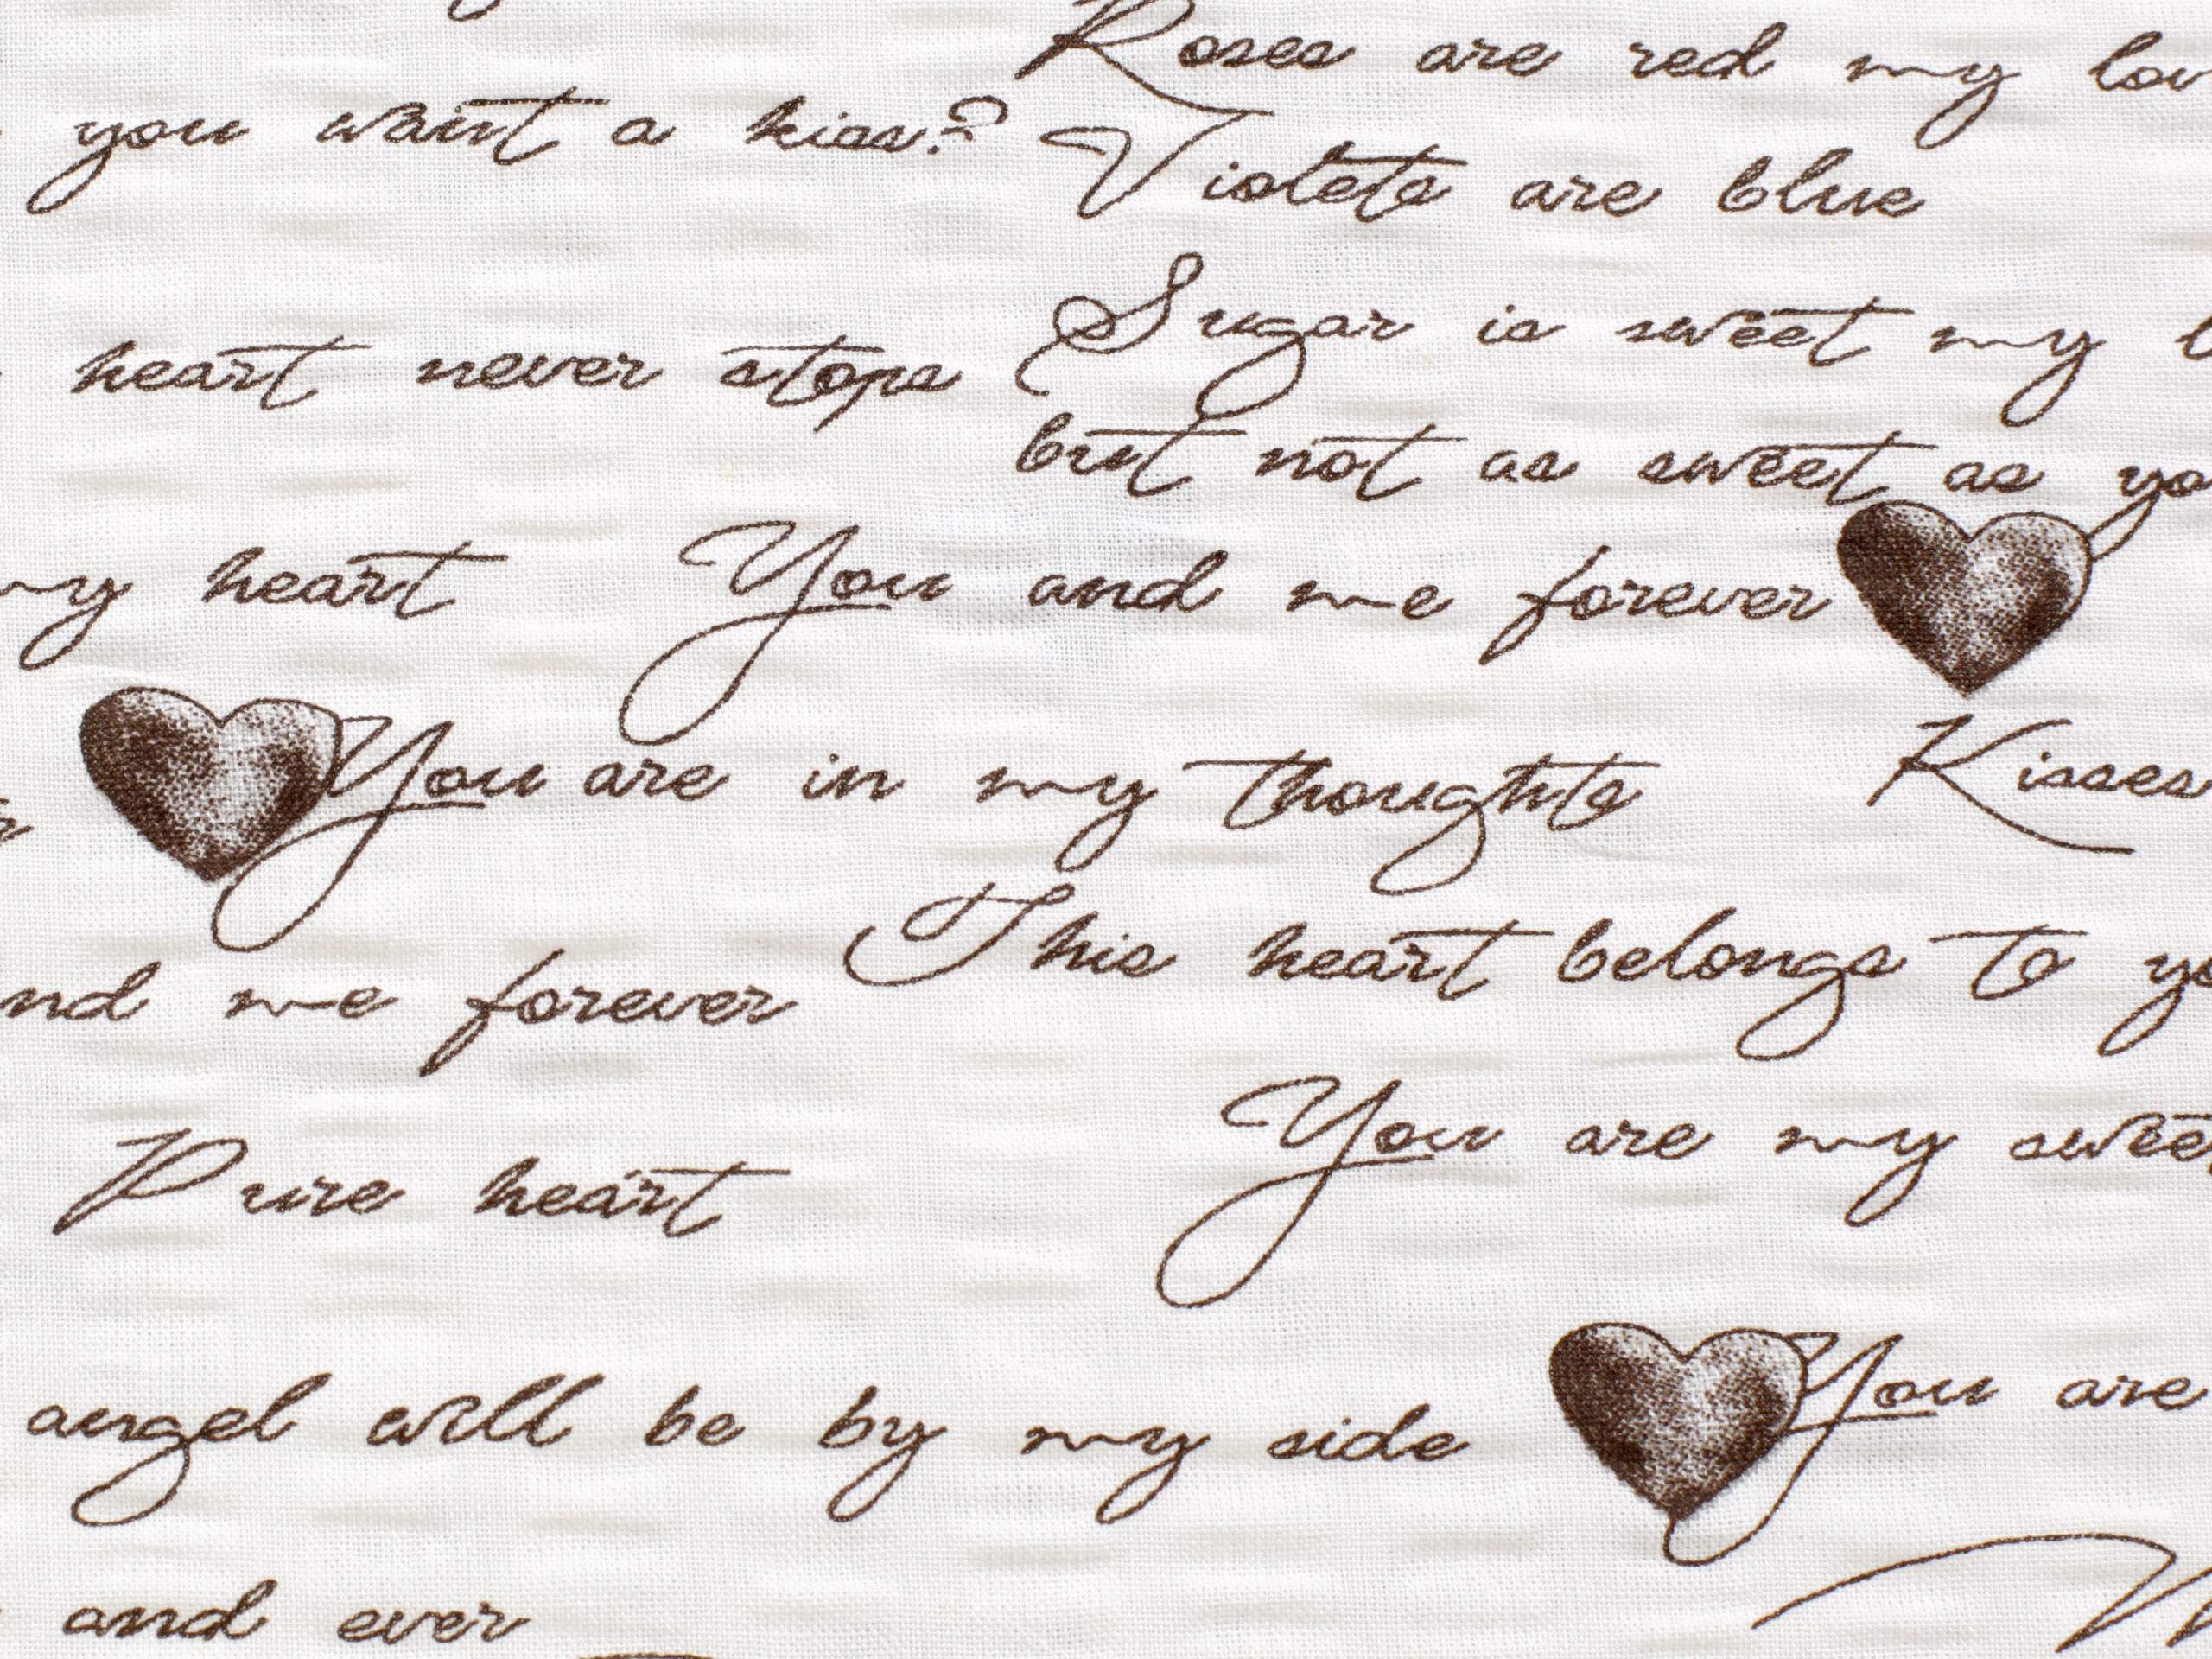 Roses are red my
you want a kiss?
Violets are blue
Sugar is sweet my
heart never stops
but not as sweet as
my heart You and me forever
You are in my thoughts Kisses
This heart belongs to
me forever
You are my
Pure heart
You are
angel will be by my side
and ever